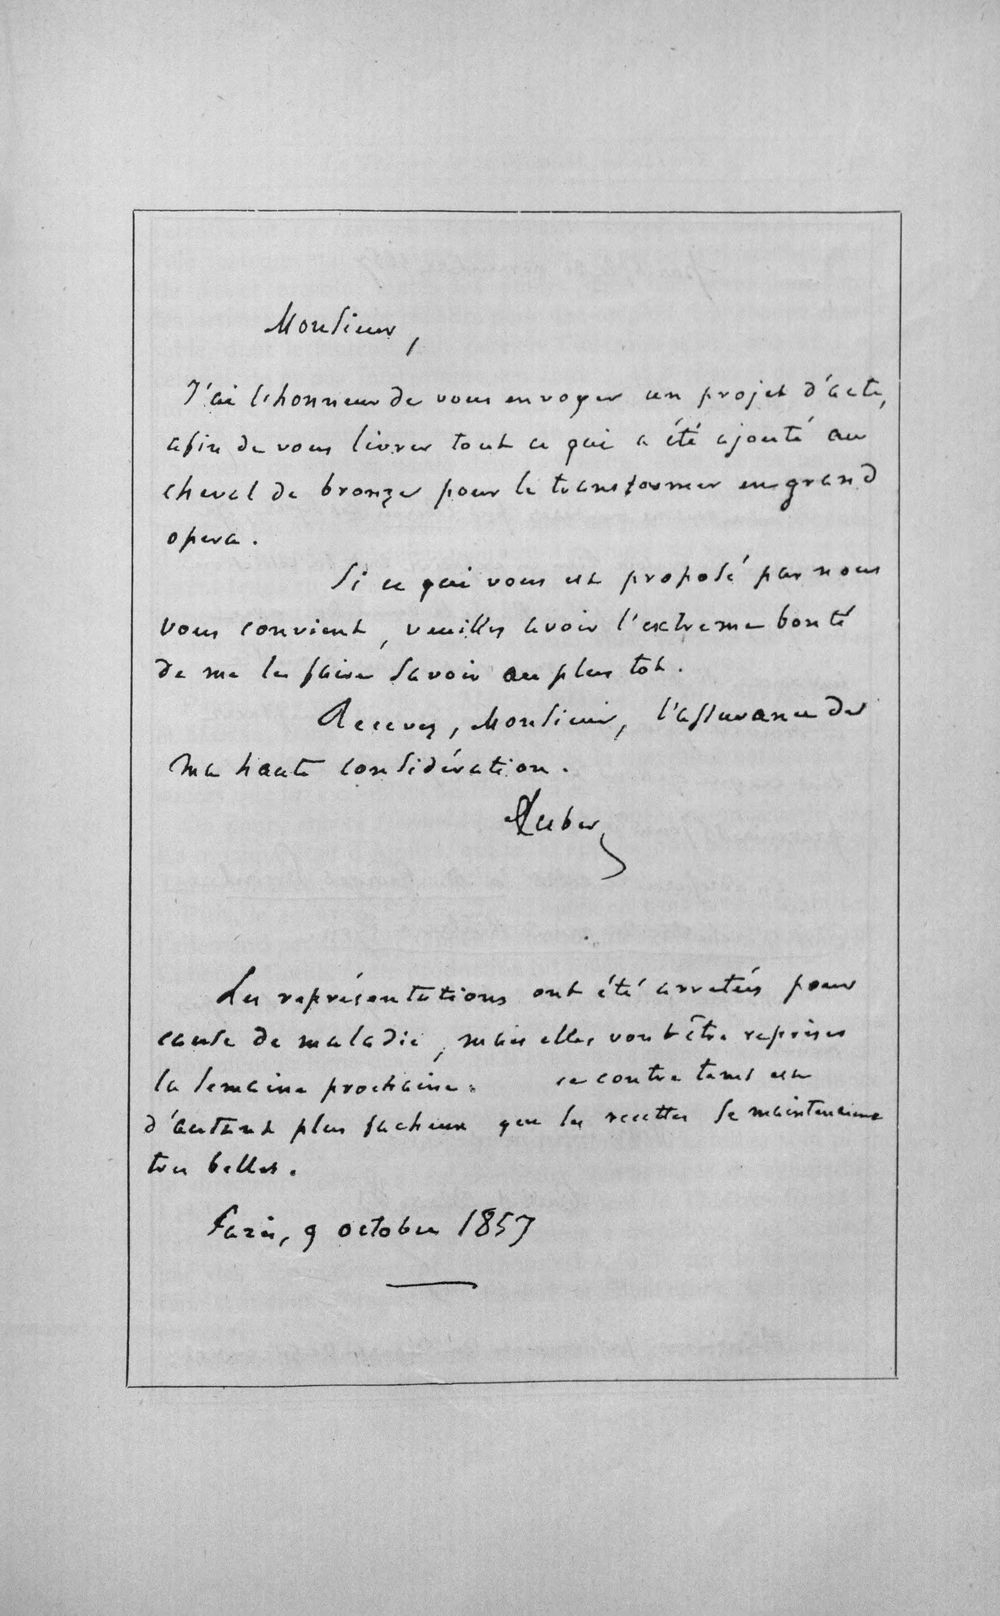 Monsieur,
J'ai l'honneur de vous envoyer un projet d'acte,
afin de vous livrer tout ce qui a été ajouté au
cheval de bronze pour le transformer en grand
opera.
Si ce qui vous est proposé par nous
vous convient, veuillez avoir l'extreme bonté
de me le faire savoir au plus tot.
Recevez, Monsieur, l'assurance de
ma haute considération.
Auber
Les représentations ont été arretées pour
cause de maladie, mais elles vont être reprises
la semaine prochaine. ce contre tems est
d'autant plus facheux que les recettes se maintenaient
tres belles.
Paris, 9 octobre 1857